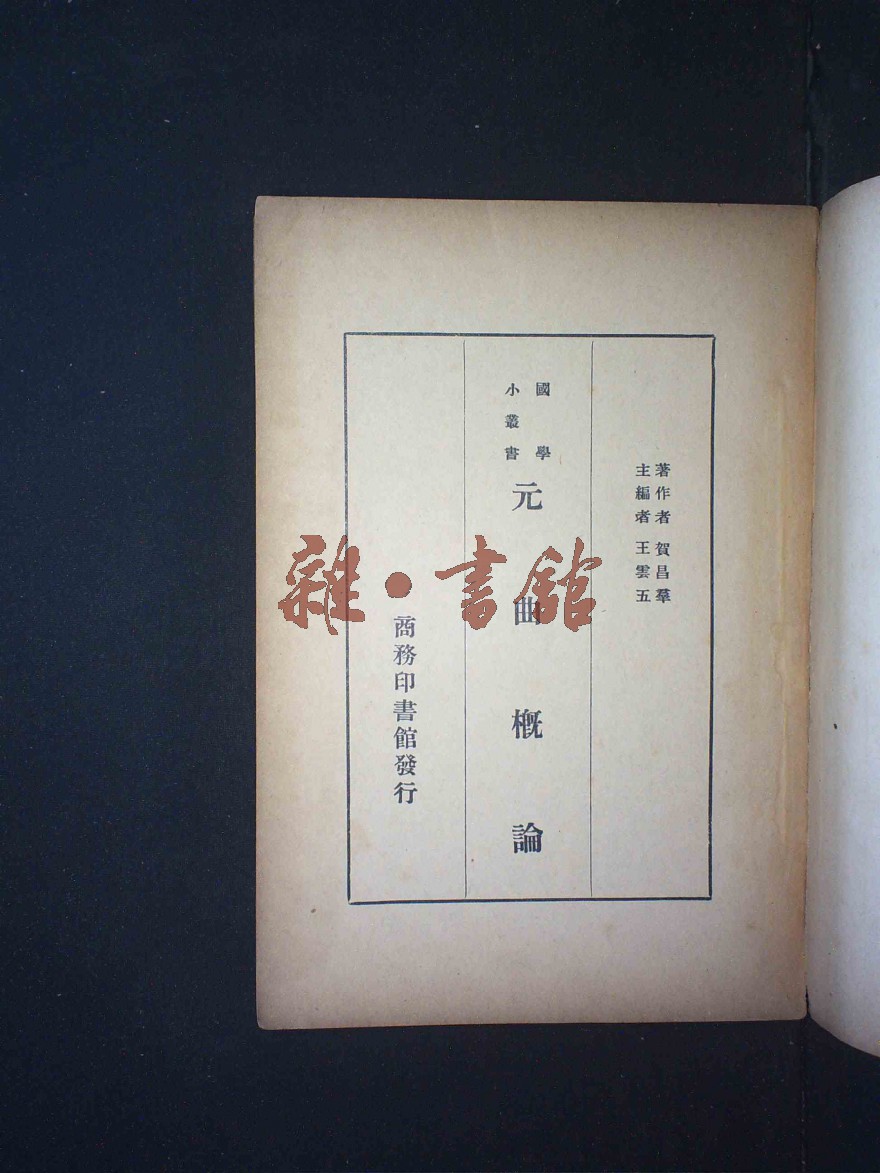 著作者 賀昌羣
主編者 王雲五
國學
小叢書
元曲概論
商務印書館發行
雜·書館